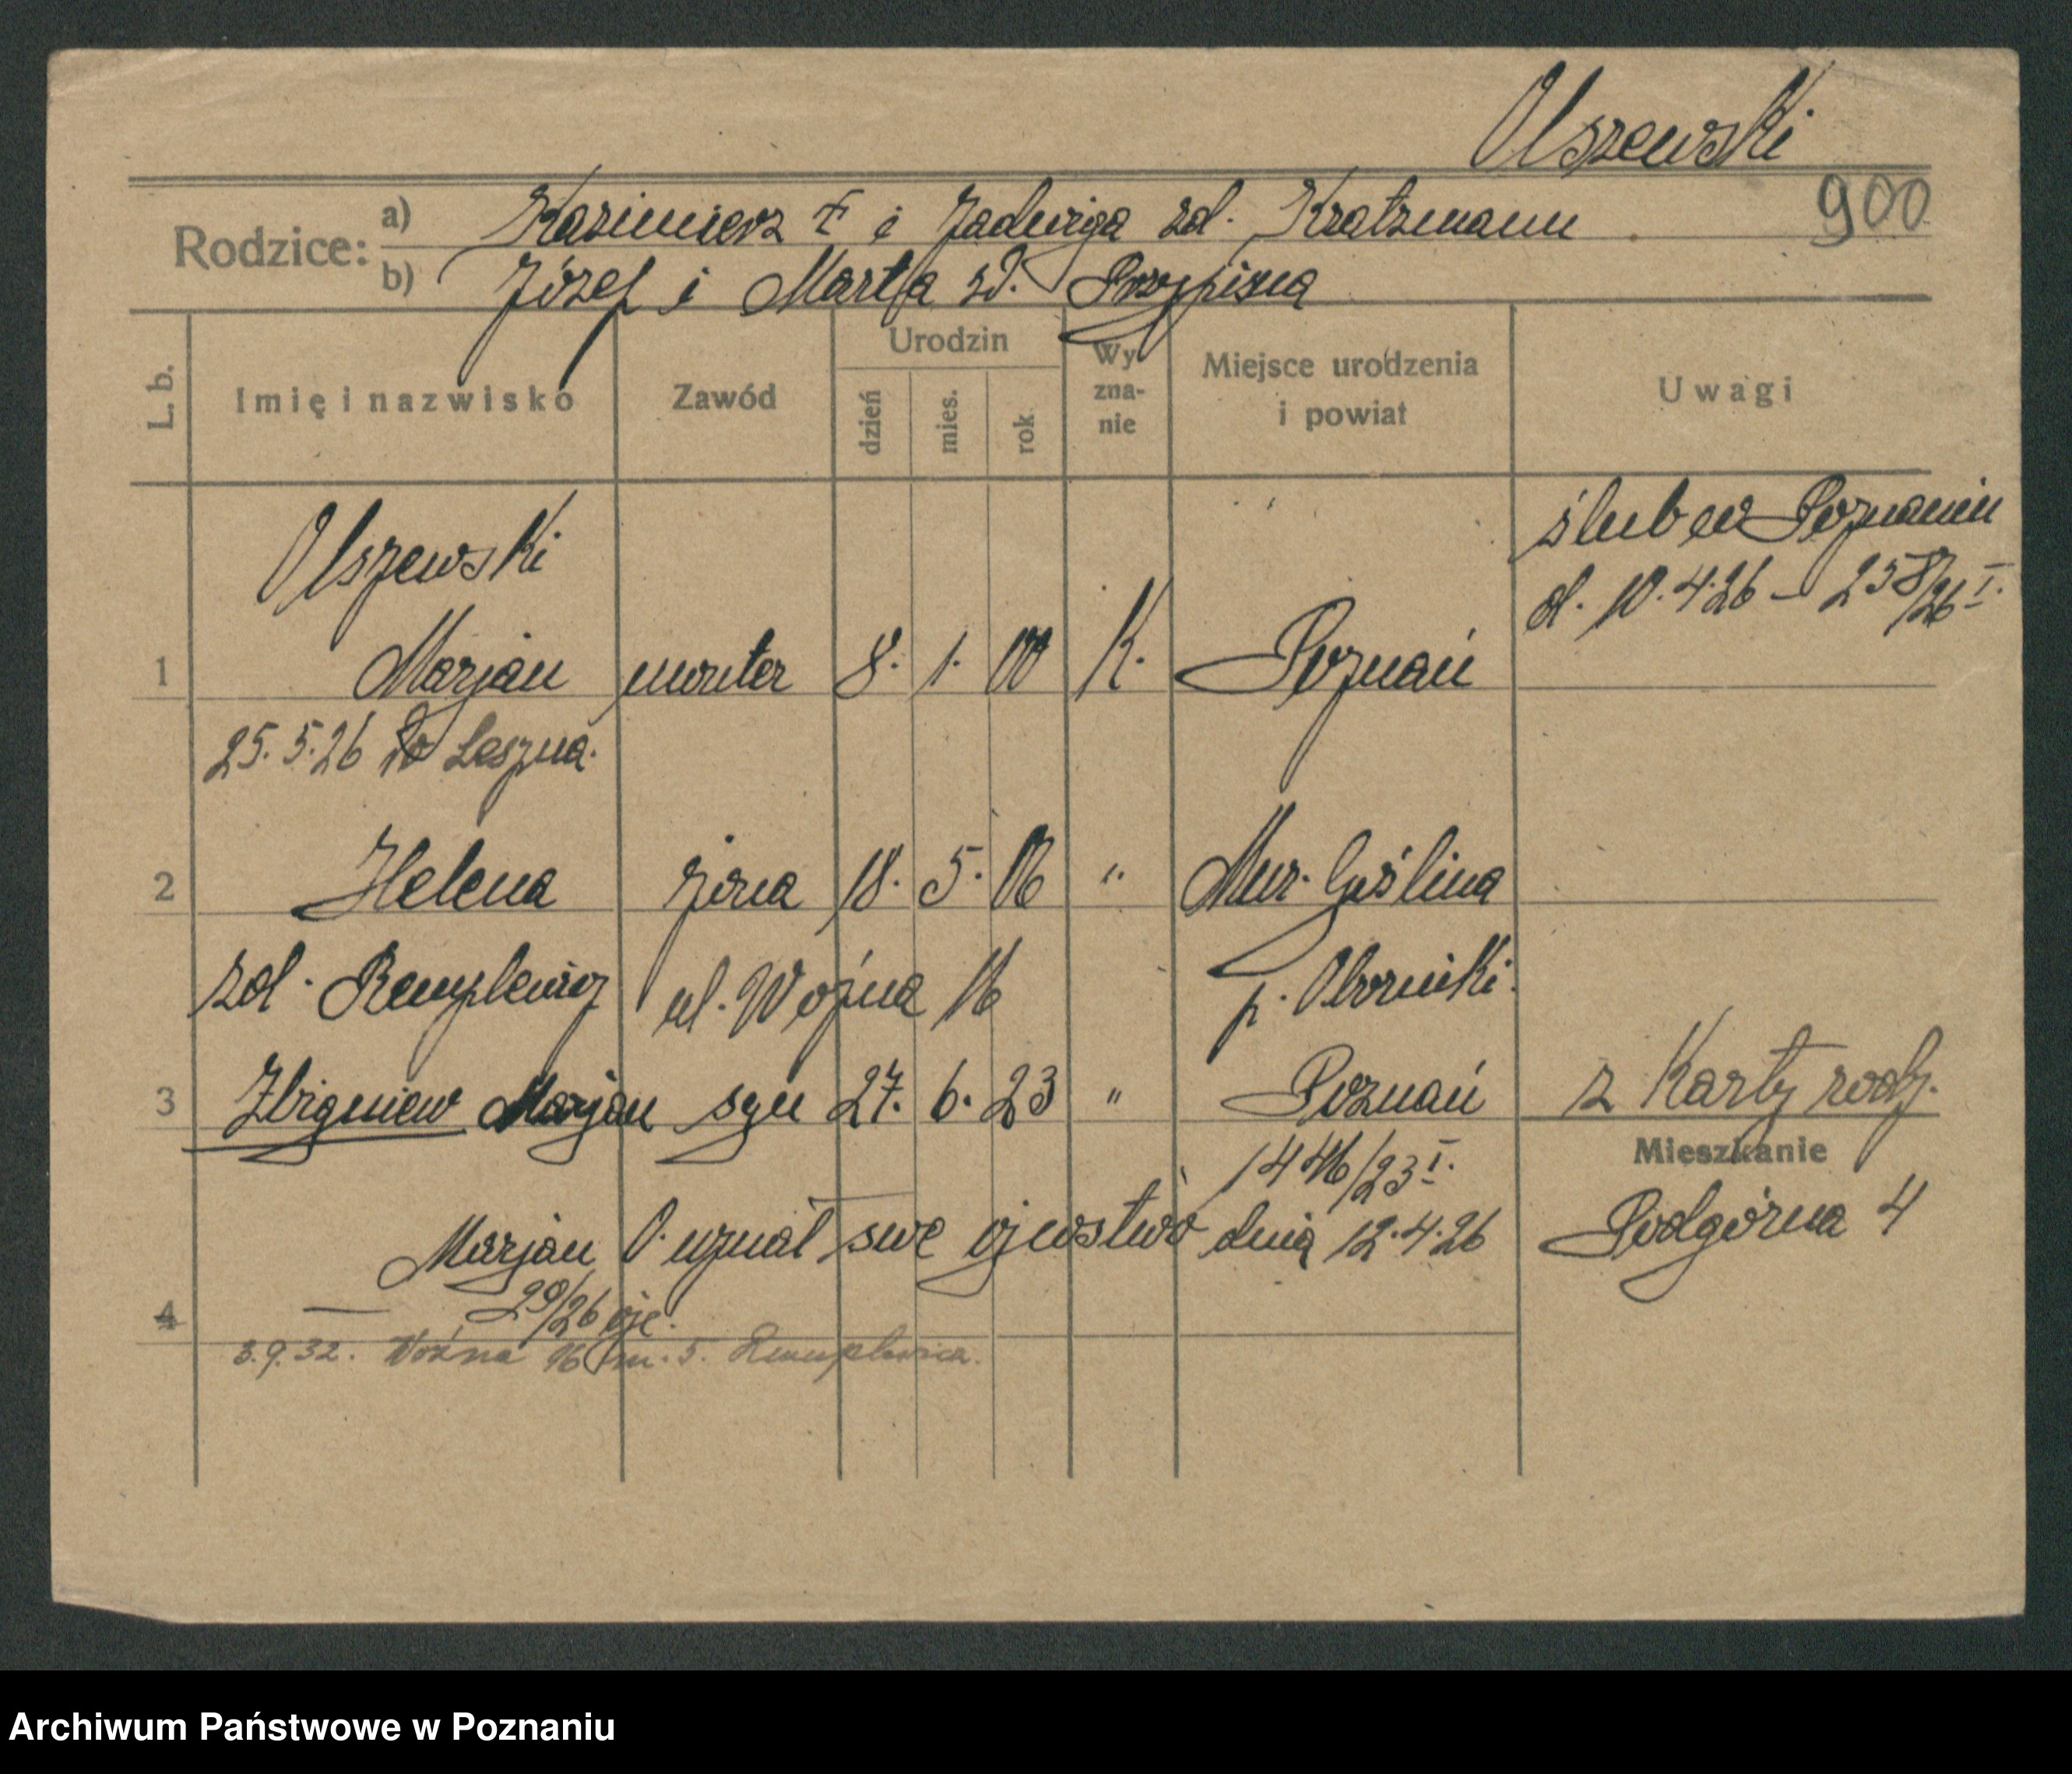 Olszewski
900
Rodzice:
a) Kazimierz † i Jadwiga zd. Kratzmann
b) Józef i Marta zd.
L. b.
Imię i nazwisko
Zawód
Urodzin
dzień
mies.
rok
Wy
zna-
nie
Miejsce urodzenia
i powiat
Uwagi
ślub w Poznaniu
d. 10.4.26 – 258/26 I.
Olszewski
1 Marjan monter 8. 1. 00 K. Poznań
25.5.26 do Leszna.
2 Helena żona 18. 5. 06 " Mur. Goślina
zd. Remplewicz ul. Woźna 16 p. Oborniki.
3 Zbigniew Marjan syn 27. 6. 23 " Poznań z Karty rodz.
1446/23 I.
Mieszkanie
Podgórna 4
Marjan O. uznał swe ojcostwo dnia 12.4.26
29/26 ojc.
4
3.9.32. Woźna 16 m. 5. Remplewicz.
Archiwum Państwowe w Poznaniu